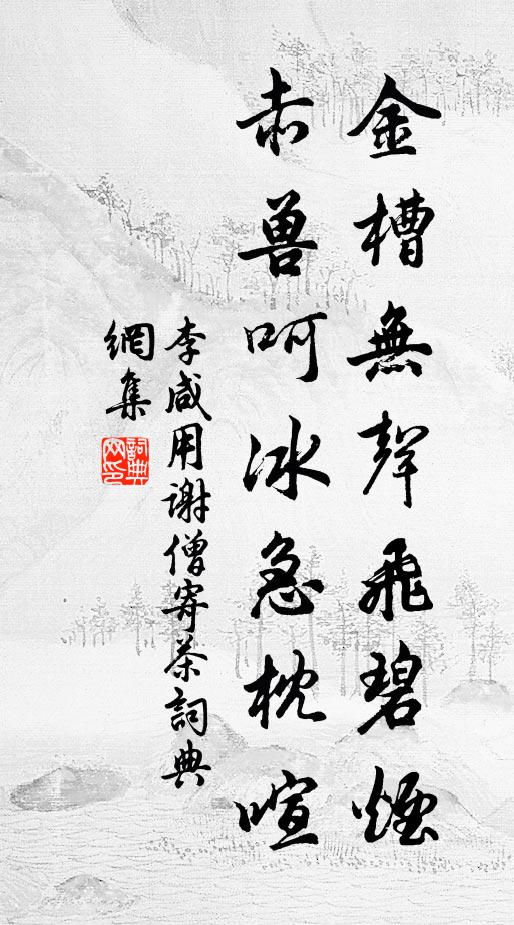 金槽無聲飛碧煙
赤兽呵冰急枕喧
李咸用谢僧寄茶詞典
網集
詞典网印